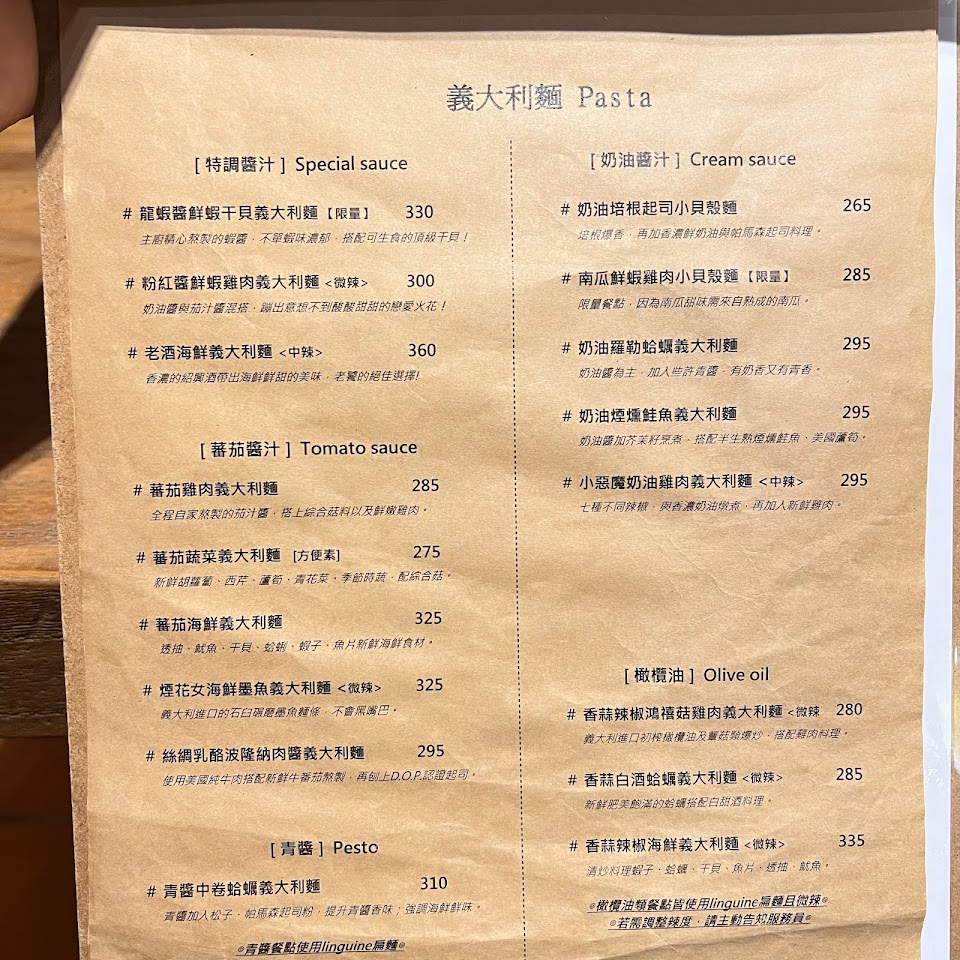 義大利麵 Pasta
[ 特調醬汁 ] Special sauce
# 龍蝦醬鮮蝦干貝義大利麵【限量】 330
主廚精心熬製的蝦醬，不單蝦味濃郁，搭配可生食的頂級干貝！
# 粉紅醬鮮蝦雞肉義大利麵 <微辣> 300
奶油醬與茄汁醬混搭，蹦出意想不到酸酸甜甜的戀愛火花！
# 老酒海鮮義大利麵 <中辣> 360
香濃的紹興酒帶出海鮮鮮甜的美味，老饕的絕佳選擇!
[ 蕃茄醬汁 ] Tomato sauce
# 蕃茄雞肉義大利麵 285
全程自家熬製的茄汁醬，搭上綜合菇料以及鮮嫩雞肉。
# 蕃茄蔬菜義大利麵 [方便素] 275
新鮮胡蘿蔔、西芹、蘆筍、青花菜、季節時蔬，配綜合菇。
# 蕃茄海鮮義大利麵 325
透抽、魷魚、干貝、蛤蜊、蝦子、魚片新鮮海鮮食材。
# 煙花女海鮮墨魚義大利麵 <微辣> 325
義大利進口的石臼碾磨墨魚麵條，不會黑嘴巴。
# 絲綢乳酪波隆納肉醬義大利麵 295
使用美國純牛肉搭配新鮮牛蕃茄熬製，再刨上D.O.P.認證起司。
[ 青醬 ] Pesto
# 青醬中卷蛤蠣義大利麵 310
青醬加入松子，帕馬森起司粉，提升青醬香味；強調海鮮鮮味。
◎青醬餐點使用linguine扁麵◎
[ 奶油醬汁 ] Cream sauce
# 奶油培根起司小貝殼麵 265
培根爆香，再加香濃鮮奶油與帕馬森起司料理。
# 南瓜鮮蝦雞肉小貝殼麵【限量】 285
限量餐點，因為南瓜甜味需來自熟成的南瓜。
# 奶油羅勒蛤蠣義大利麵 295
奶油醬為主，加入些許青醬，有奶香又有青香。
# 奶油煙燻鮭魚義大利麵 295
奶油醬加芥茉籽烹煮，搭配半生熟煙燻鮭魚、美國蘆筍。
# 小惡魔奶油雞肉義大利麵 <中辣> 295
七種不同辣椒，與香濃奶油燉煮，再加入新鮮雞肉。
[ 橄欖油 ] Olive oil
# 香蒜辣椒鴻禧菇雞肉義大利麵 <微辣 280
義大利進口初榨橄欖油及蕈菇類爆炒，搭配雞肉料理。
# 香蒜白酒蛤蠣義大利麵 <微辣> 285
新鮮肥美飽滿的蛤蠣搭配白甜酒料理。
# 香蒜辣椒海鮮義大利麵 <微辣> 335
清炒料理蝦子、蛤蠣、干貝、魚片、透抽、魷魚。
◎橄欖油類餐點皆使用linguine扁麵且微辣◎
◎若需調整辣度，請主動告知服務員◎